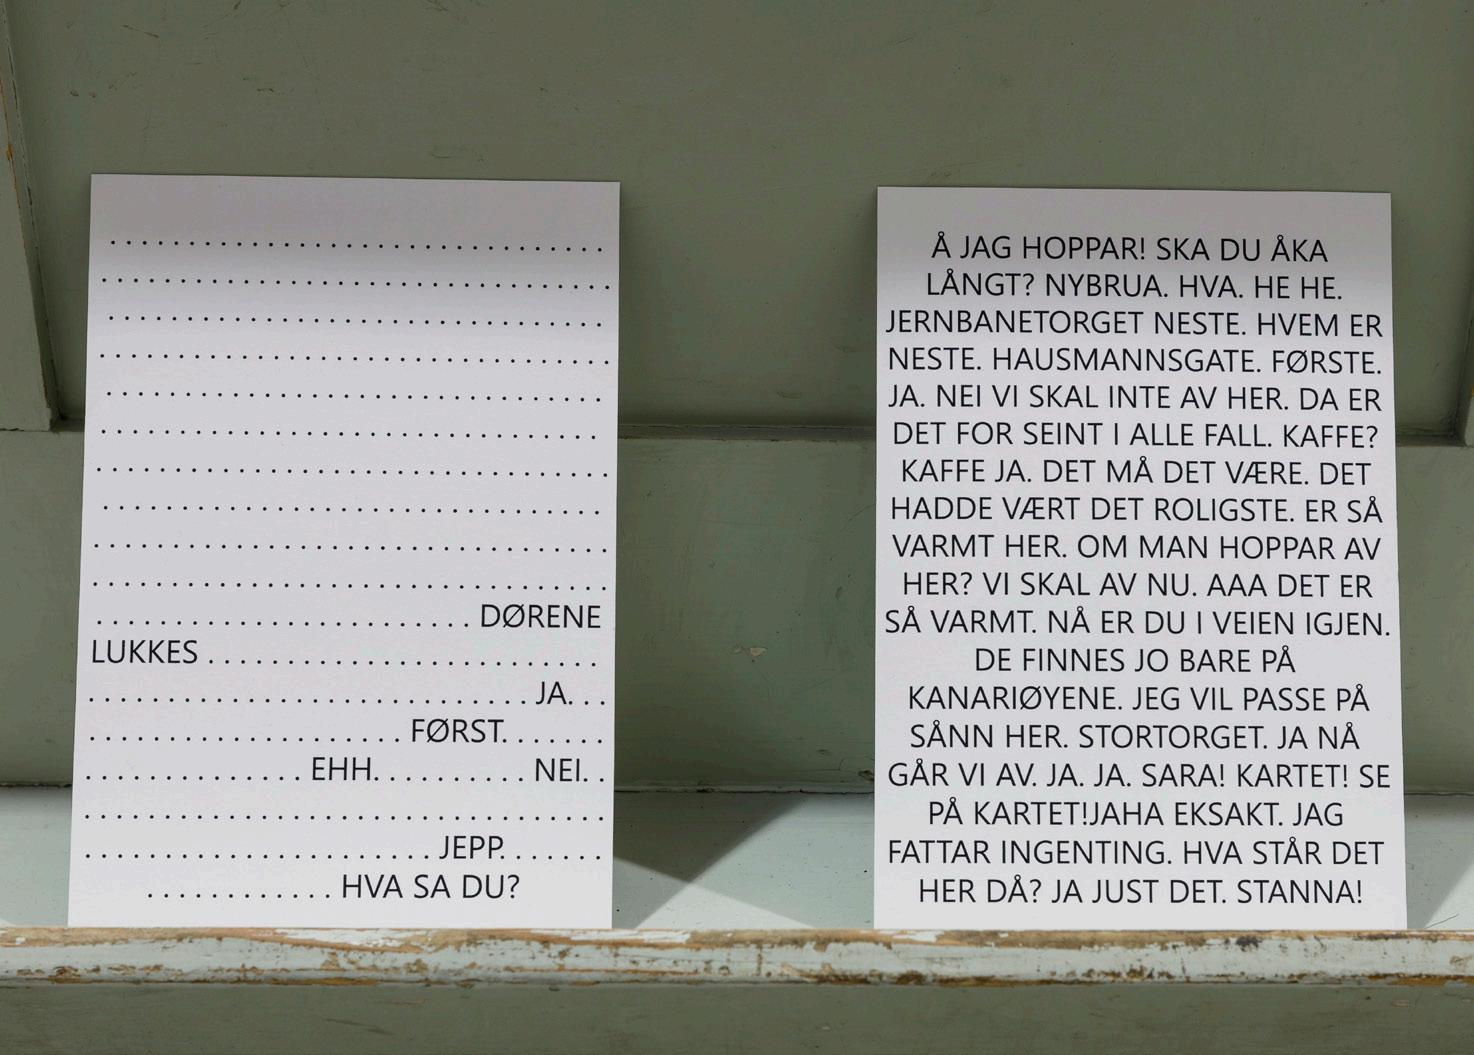 . . . . . . . . . . . . . . . . . . . . . . . . . . . . . . . . . . . . . .
. . . . . . . . . . . . . . . . . . . . . . . . . . . . . . . . . . . . . . .
. . . . . . . . . . . . . . . . . . . . . . . . . . . . . . . . . . . . . .
. . . . . . . . . . . . . . . . . . . . . . . . . . . . . . . . . . . . . . .
. . . . . . . . . . . . . . . . . . . . . . . . . . . . . . . . . . . . . .
. . . . . . . . . . . . . . . . . . . . . . . . . . . . . . . . . . . . . . .
. . . . . . . . . . . . . . . . . . . . . . . . . . . . . . . . . . . . . . .
. . . . . . . . . . . . . . . . . . . . . . . . . . . . . . . . . . . . . .
. . . . . . . . . . . . . . . . . . . . . . . . . . . . . . . . . . . . . . .
. . . . . . . . . . . . . . . . . . . . . . . . . . . . . . . . . . . . . . .
. . . . . . . . . . . . . . . . . . . . . . . . . . . . . DØRENE
LUKKES . . . . . . . . . . . . . . . . . . . . . . . . . . . . . .
. . . . . . . . . . . . . . . . . . . . . . . . . . . . . . . . . . JA. . .
. . . . . . . . . . . . . . . . . . . . . . . . FØRST. . . . . . . .
. . . . . . . . . . . . . . . . . EHH. . . . . . . . . . . . NEI. .
. . . . . . . . . . . . . . . . . . . . . . . . . . . . . . . . . . . . . . . .
. . . . . . . . . . . . . . . . . . . . . . . . . . . JEPP. . . . . . . .
. . . . . . . . . . . . . . HVA SA DU?
Å JAG HOPPAR! SKA DU ÅKA
LÅNGT? NYBRUA. HVA. HE HE.
JERNBANETORGET NESTE. HVEM ER
NESTE. HAUSMANNSGATE. FØRSTE.
JA. NEI VI SKAL INTE AV HER. DA ER
DET FOR SEINT I ALLE FALL. KAFFE?
KAFFE JA. DET MÅ DET VÆRE. DET
HADDE VÆRT DET ROLIGSTE. ER SÅ
VARMT HER. OM MAN HOPPAR AV
HER? VI SKAL AV NU. AAA DET ER
SÅ VARMT. NÅ ER DU I VEIEN IGJEN.
DE FINNES JO BARE PÅ
KANARIØYENE. JEG VIL PASSE PÅ
SÅNN HER. STORTORGET. JA NÅ
GÅR VI AV. JA. JA. SARA! KARTET! SE
PÅ KARTET!JAHA EKSAKT. JAG
FATTAR INGENTING. HVA STÅR DET
HER DÅ? JA JUST DET. STANNA!